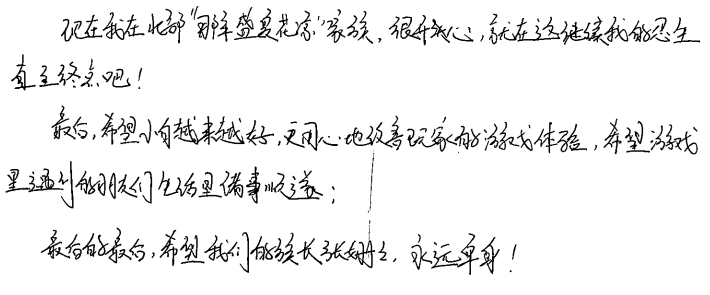 现在我在北部“那年盛夏花落”家族，很开心，就在这继续我的忍生
直至终点吧！
最后，希望小白越来越好，更用心地改善玩家的游戏体验，希望游戏
里遇到的朋友们生活里诸事顺遂；
最后的最后，希望我们的族长张姗，永远单身！